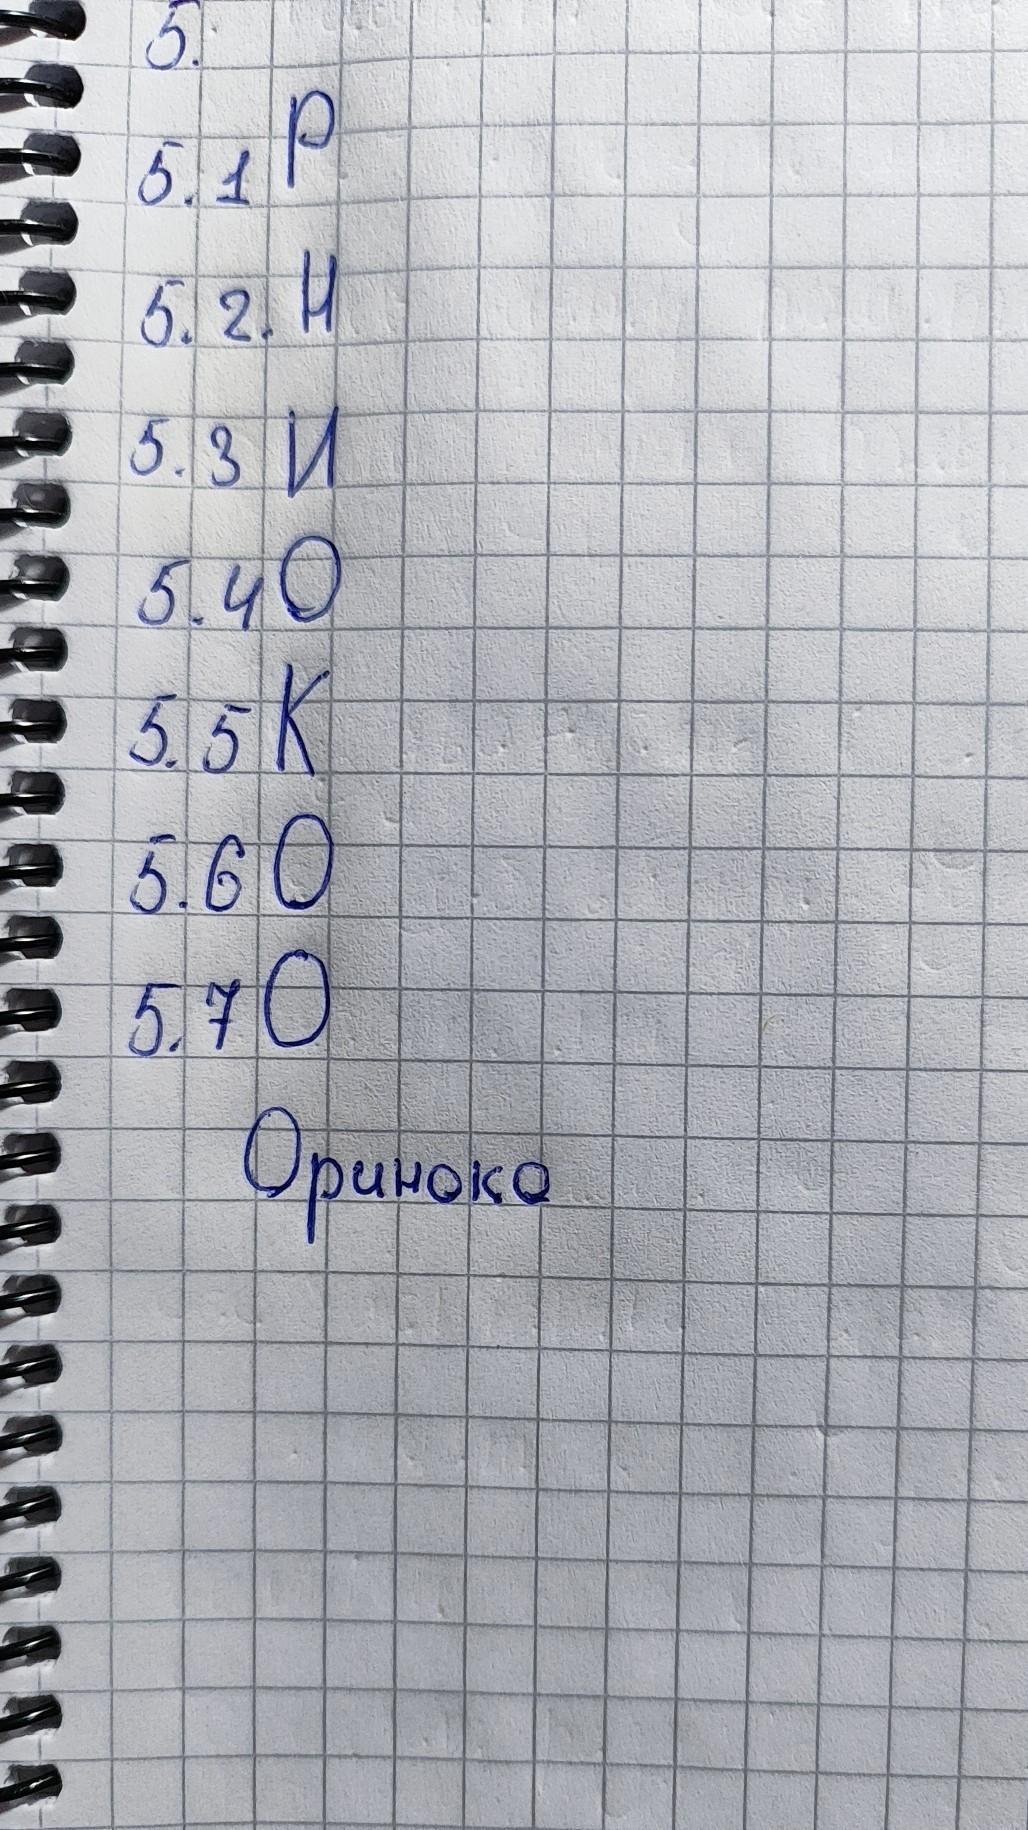 5.
5.1 Р
5.2. Н
5.3 И
5.4 О
5.5 К
5.6 О
5.7 О
Ориноко